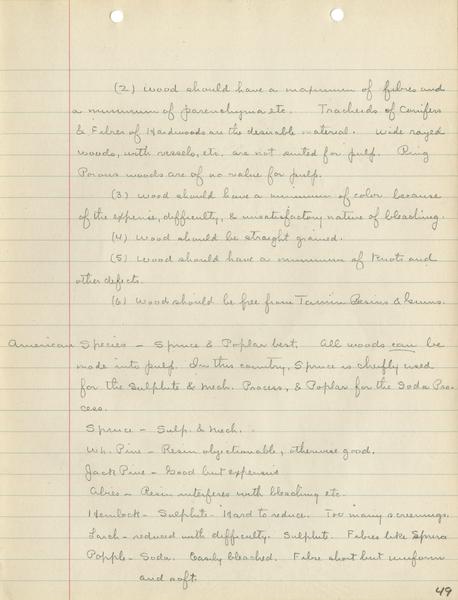 (2) Wood should have a maximum of fibres and
a minimum of parenchyma etc. Tracheids of Conifers
& Fibres of Hardwoods are the desirable material. Wide rayed
woods, with vessels, etc. are not suited for pulp. Ring
Porous woods are of no value for pulp.
(3) Wood should have a minimum of color because
of the expense, difficulty, & unsatisfactory nature of bleaching.
(4) Wood should be straight grained.
(5) Wood should have a minimum of knots and
other defects.
(6) Wood should be free from Tannin Resins & Gums.
American Species - Spruce & Poplar best. All woods can be
made into pulp. In this country, Spruce is chiefly used
for the Sulphite & Mech. Process, & Poplar for the Soda Pro-
cess.
Spruce - Sulp. & Mech.
Wh. Pine - Resin objectionable, otherwise good.
Jack Pine - Good but expensive
Abies - Resin interferes with bleaching etc.
Hemlock - Sulphite - Hard to reduce. Too many screenings.
Larch - reduced with difficulty. Sulphite. Fibres like Spruce
Popple - Soda. Easily bleached. Fibre short but uniform
and soft.
49